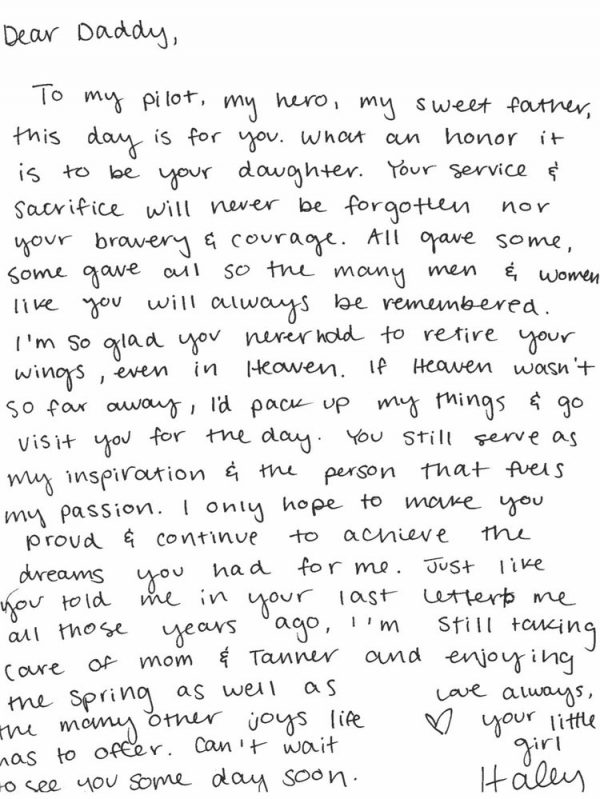 Dear Daddy,
To my pilot, my hero, my sweet father,
this day is for you. What an honor it
is to be your daughter. Your service &
sacrifice will never be forgotten nor
your bravery & courage. All gave some,
some gave all so the many men & women
like you will always be remembered.
I'm so glad you never hold to retire your
wings, even in Heaven. If Heaven wasn't
so far away, I'd pack up my things & go
visit you for the day. You still serve as
my inspiration & the person that fuels
my passion. I only hope to make you
proud & continue to achieve the
dreams you had for me. Just like
you told me in your last letter me
all those years ago, I'm still taking
care of mom & Tanner and enjoying
the spring as well as
the many other joys life
has to offer. Can't wait
to see you some day soon.
Love always,
♡ your little
girl
Haley